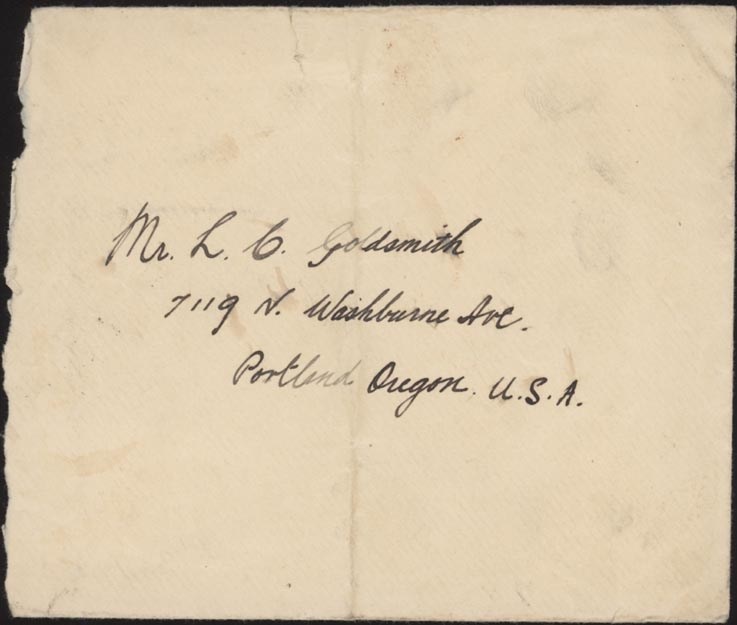 Mr. L. C. Goldsmith
7119 N. Washburne Ave.
Portland Oregon. U.S.A.